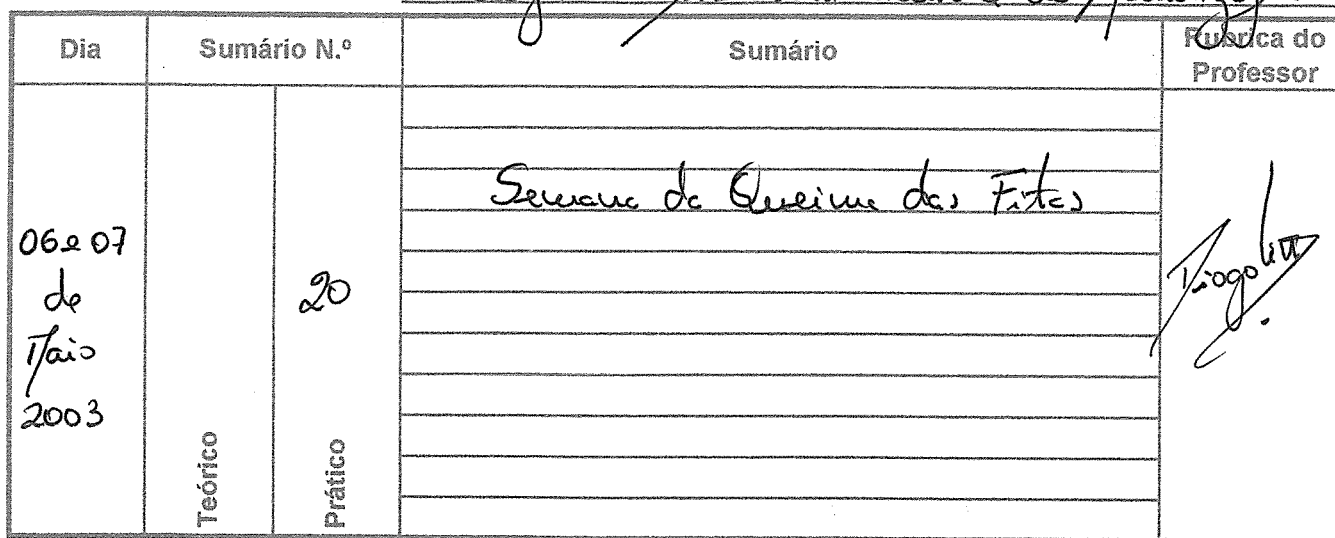 Dia
Sumário N.º
Sumário
Rubrica do
Professor
06 e 07
de
Maio
2003
Teórico
20
Prático
Semana da Queima das Fitas
Diogo